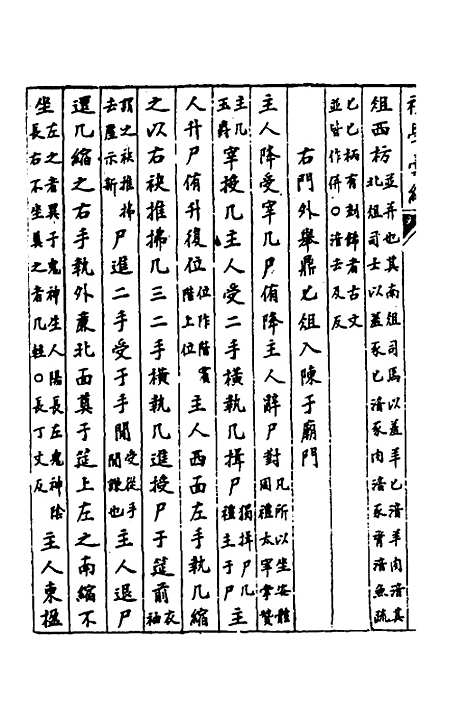 俎西枋並并也其南俎司馬以羞羊匕湇羊肉湇其北俎司士以羞豕匕湇豕肉湇豕脀湇魚疏
匕匕柄有刻飾者古文並皆作併〇湇去及反
右門外舉鼎匕俎入陳于廟門
主人降受宰几尸侑降主人辭尸對几所以坐安體周禮太宰掌贊
主几玉爵宰授几主人受二手橫執几揖尸獨揖尸几禮主于尸主
人升尸侑升復位位阼階賓階上位主人西面左手執几縮
之以右袂推拂几三二手橫執几進授尸于筵前衣袖
謂之袂推拂去塵示新尸進二手受于手間受從手間謙也主人退尸
還几縮之右手執外亷北面奠于筵上左之南縮不
坐左之者異于鬼神生人陽長左鬼神陰長右不坐奠之者几輕〇長丁丈反主人東楹